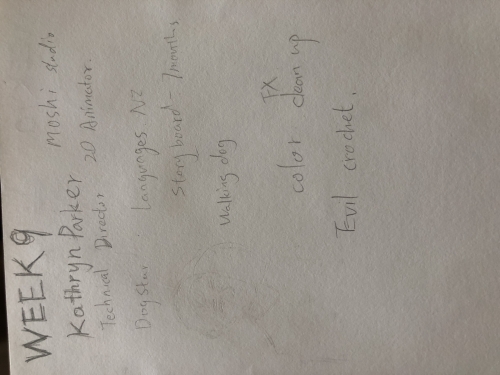 WEEK 9
Kathryn Parker Moshi studio
Technical Director 2D Animator.
Dogstar Languages NZ
Storyboard - 7 months
Walking dog
FX
color clean up
Evil crochet.